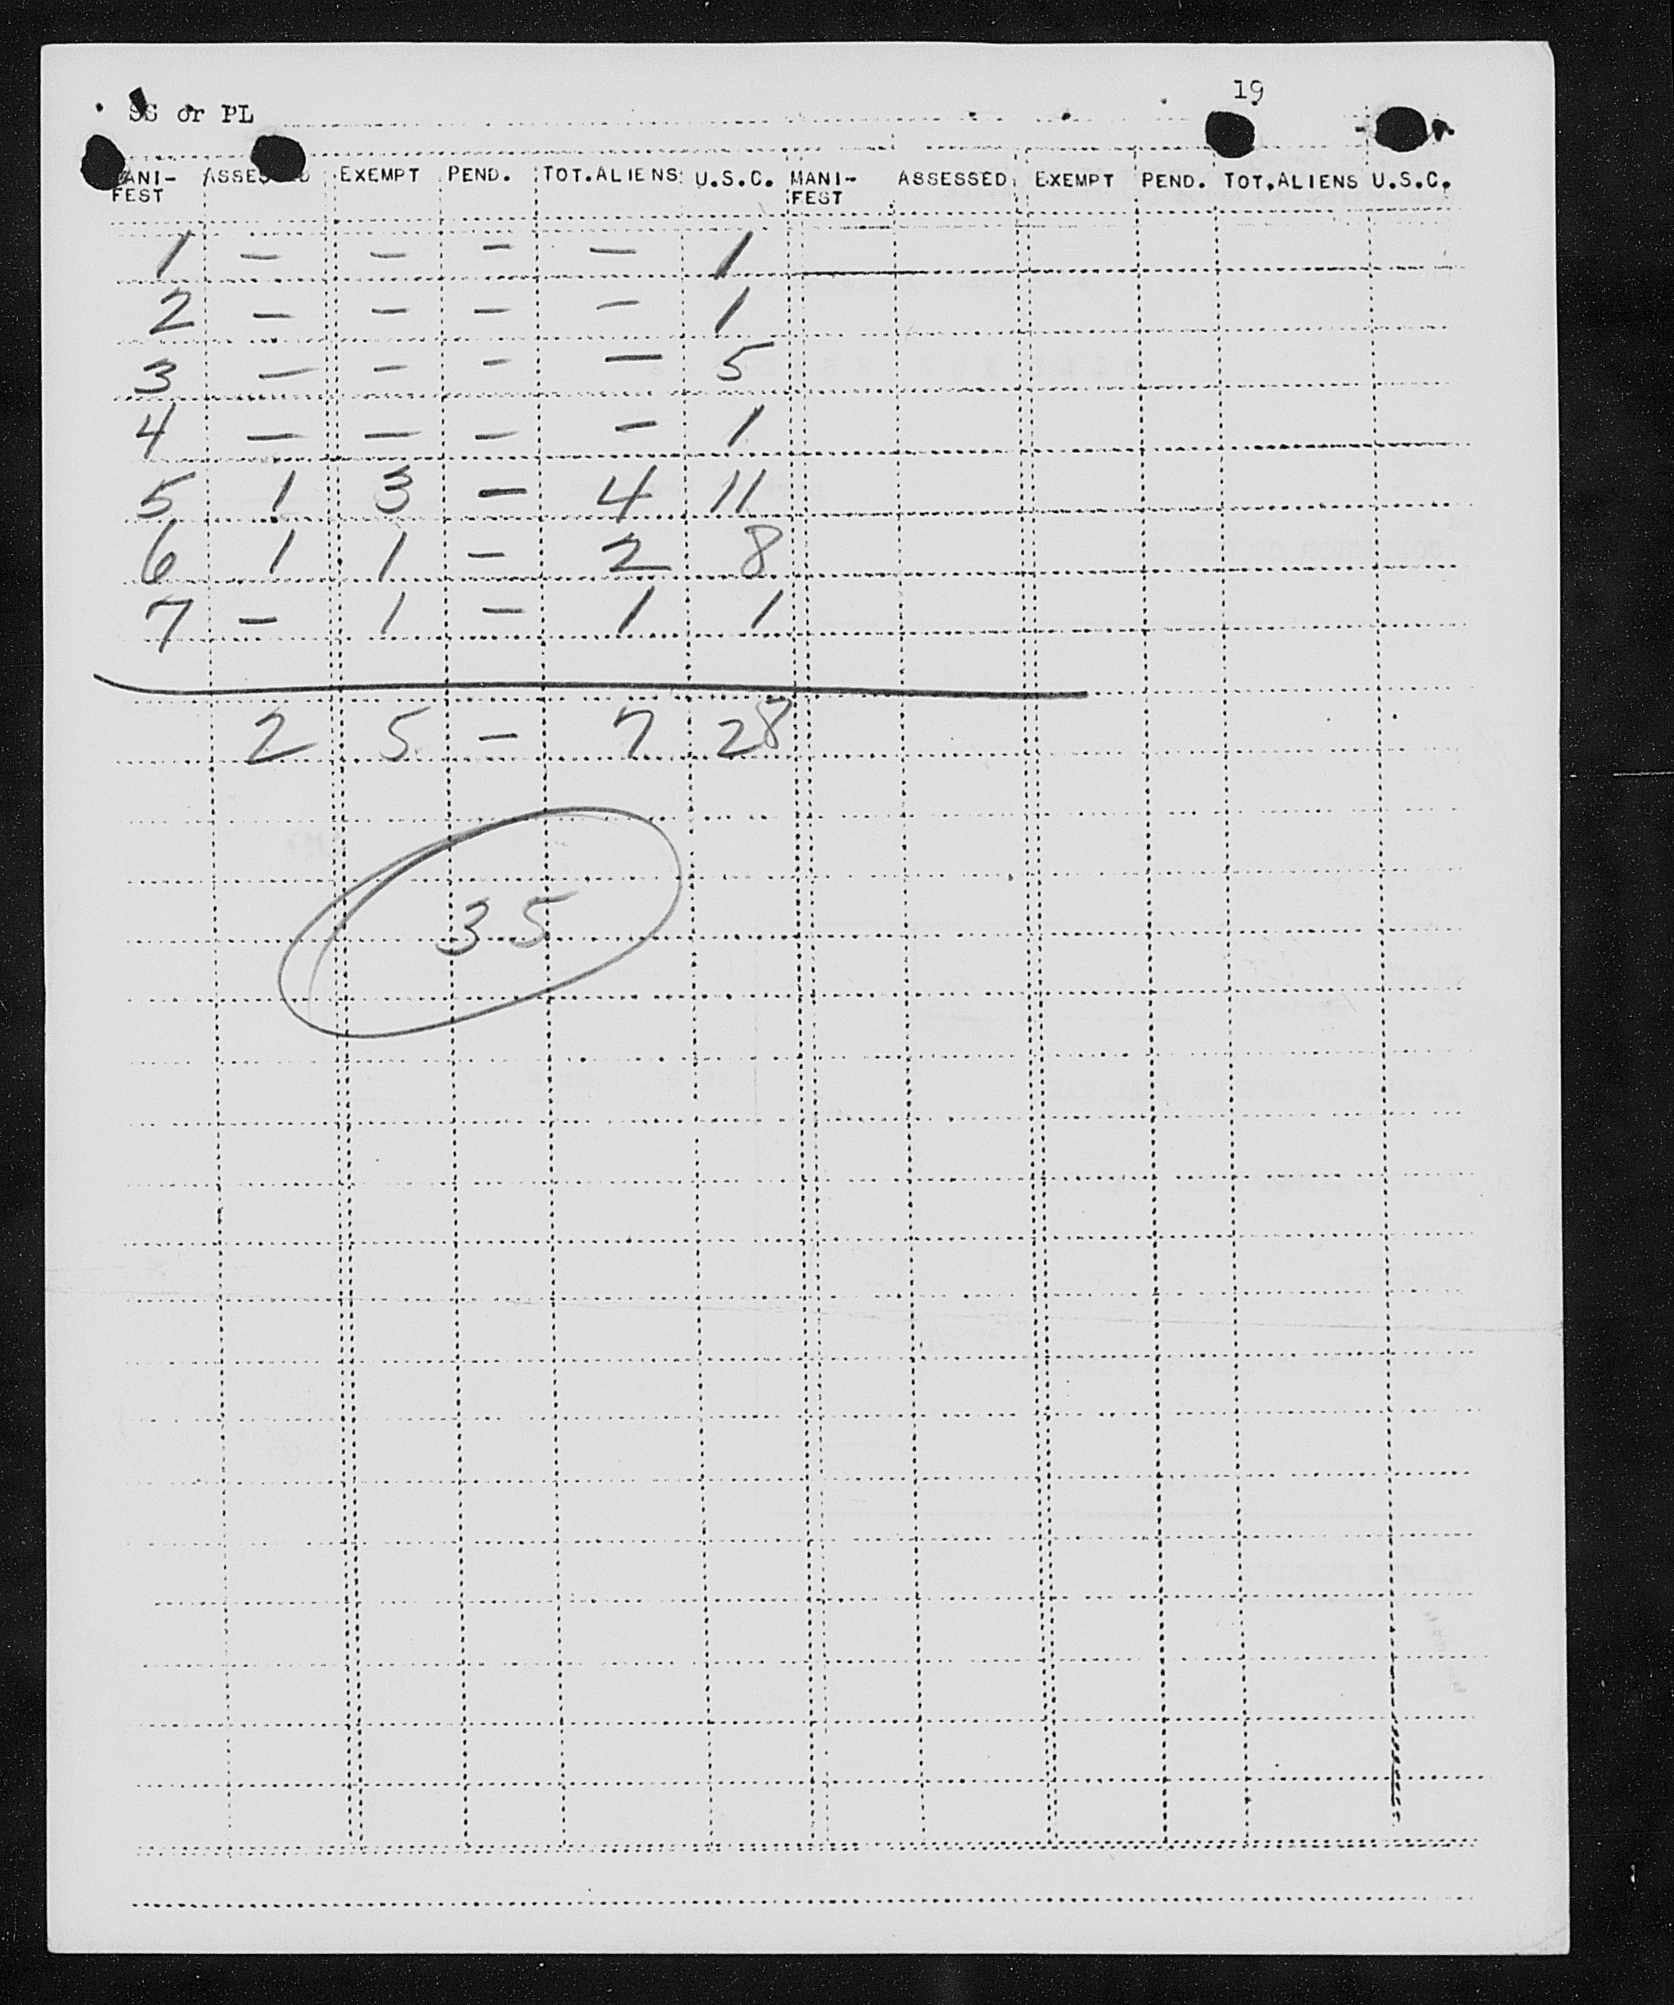 19
SS or PL
MANI- ASSESSED EXEMPT PEND. TOT.ALIENS U.S.C. MANI- ASSESSED EXEMPT PEND. TOT.ALIENS U.S.C.
FEST FEST
1 - - - - 1
2 - - - - 1
3 - - - - 5
4 - - - - 1
5 1 3 - 4 11
6 1 1 - 2 8
7 - 1 - 1 1
2 5 - 7 28
35